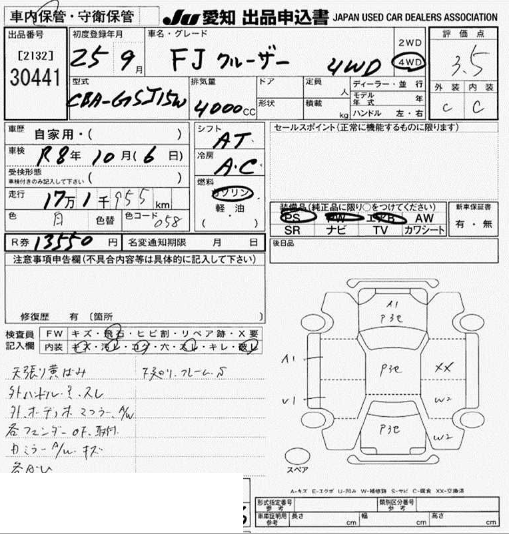 車内保管・守衛保管
JU 愛知 出品申込書 JAPAN USED CAR DEALERS ASSOCIATION
出品番号
[2132]
30441
初度登録年月
25年 9月
車名・グレード
FJ クルーザー 4WD
2WD
4WD
評価点
3.5
外装 内装
C C
型式
CBA-GSJ15W
排気量
4000cc
ドア
形状
定員 人
積載 kg
ディーラー・並行
モデル年式 年
ハンドル 左・右
車歴 自家用・( )
車検 R8年10月(6日)
受検形態
車検付きのみ記入して下さい ( )
走行 17万1千955km
色 色替 色コード 058
シフト AT
冷房 A.C
燃料
ガソリン
軽油
( )
セールスポイント(正常に機能するものに限ります)
装備品(純正品に限り○をつけてください)
PS PW エアB AW
SR ナビ TV カワシート
新車保証書
有・無
R券 13550円 名変通知期限 月 日
後日品
注意事項申告欄(不具合内容等は具体的に記入して下さい)
修復歴 有〔箇所 〕
検査員
記入欄
FW キズ・飛石・ヒビ割・リペア跡・X要
内装 キズ・汚レ・コゲ・穴・スレ・キレ・破レ
天張り黄ばみ
外ハンドル
外オーディオ マフラー A/W
各フェンダー
カミラー A/W キズ
下廻り、フレームS
A1
P3℃
A1
P3℃
XX
V1
W2
P3℃
W2
スペア
A-キズ E-エクボ U-凹み W-補修跡 S-サビ C-腐食 XX-交換済
形式指定番号
参考
類別区分番号
参考
車庫証明用
参考
長さ cm
幅 cm
高さ cm